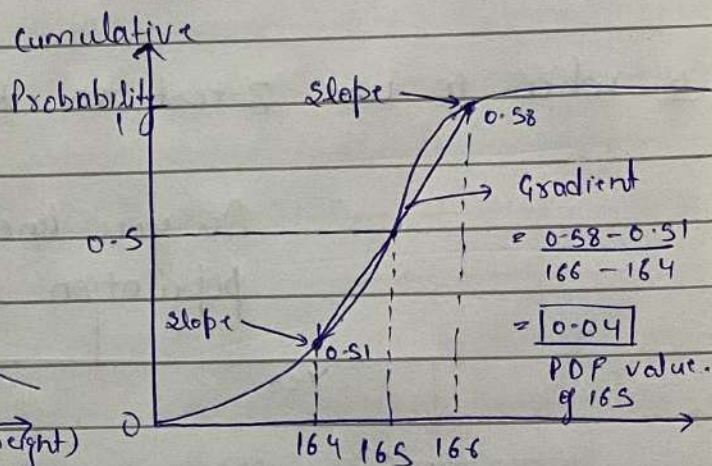 Cumulative
Probability
1
0.5
0
Slope
0.58
Gradient
= 0.58 - 0.51
166 - 164
= 0.04
PDF value.
of 165
Slope
0.51
164 165 166